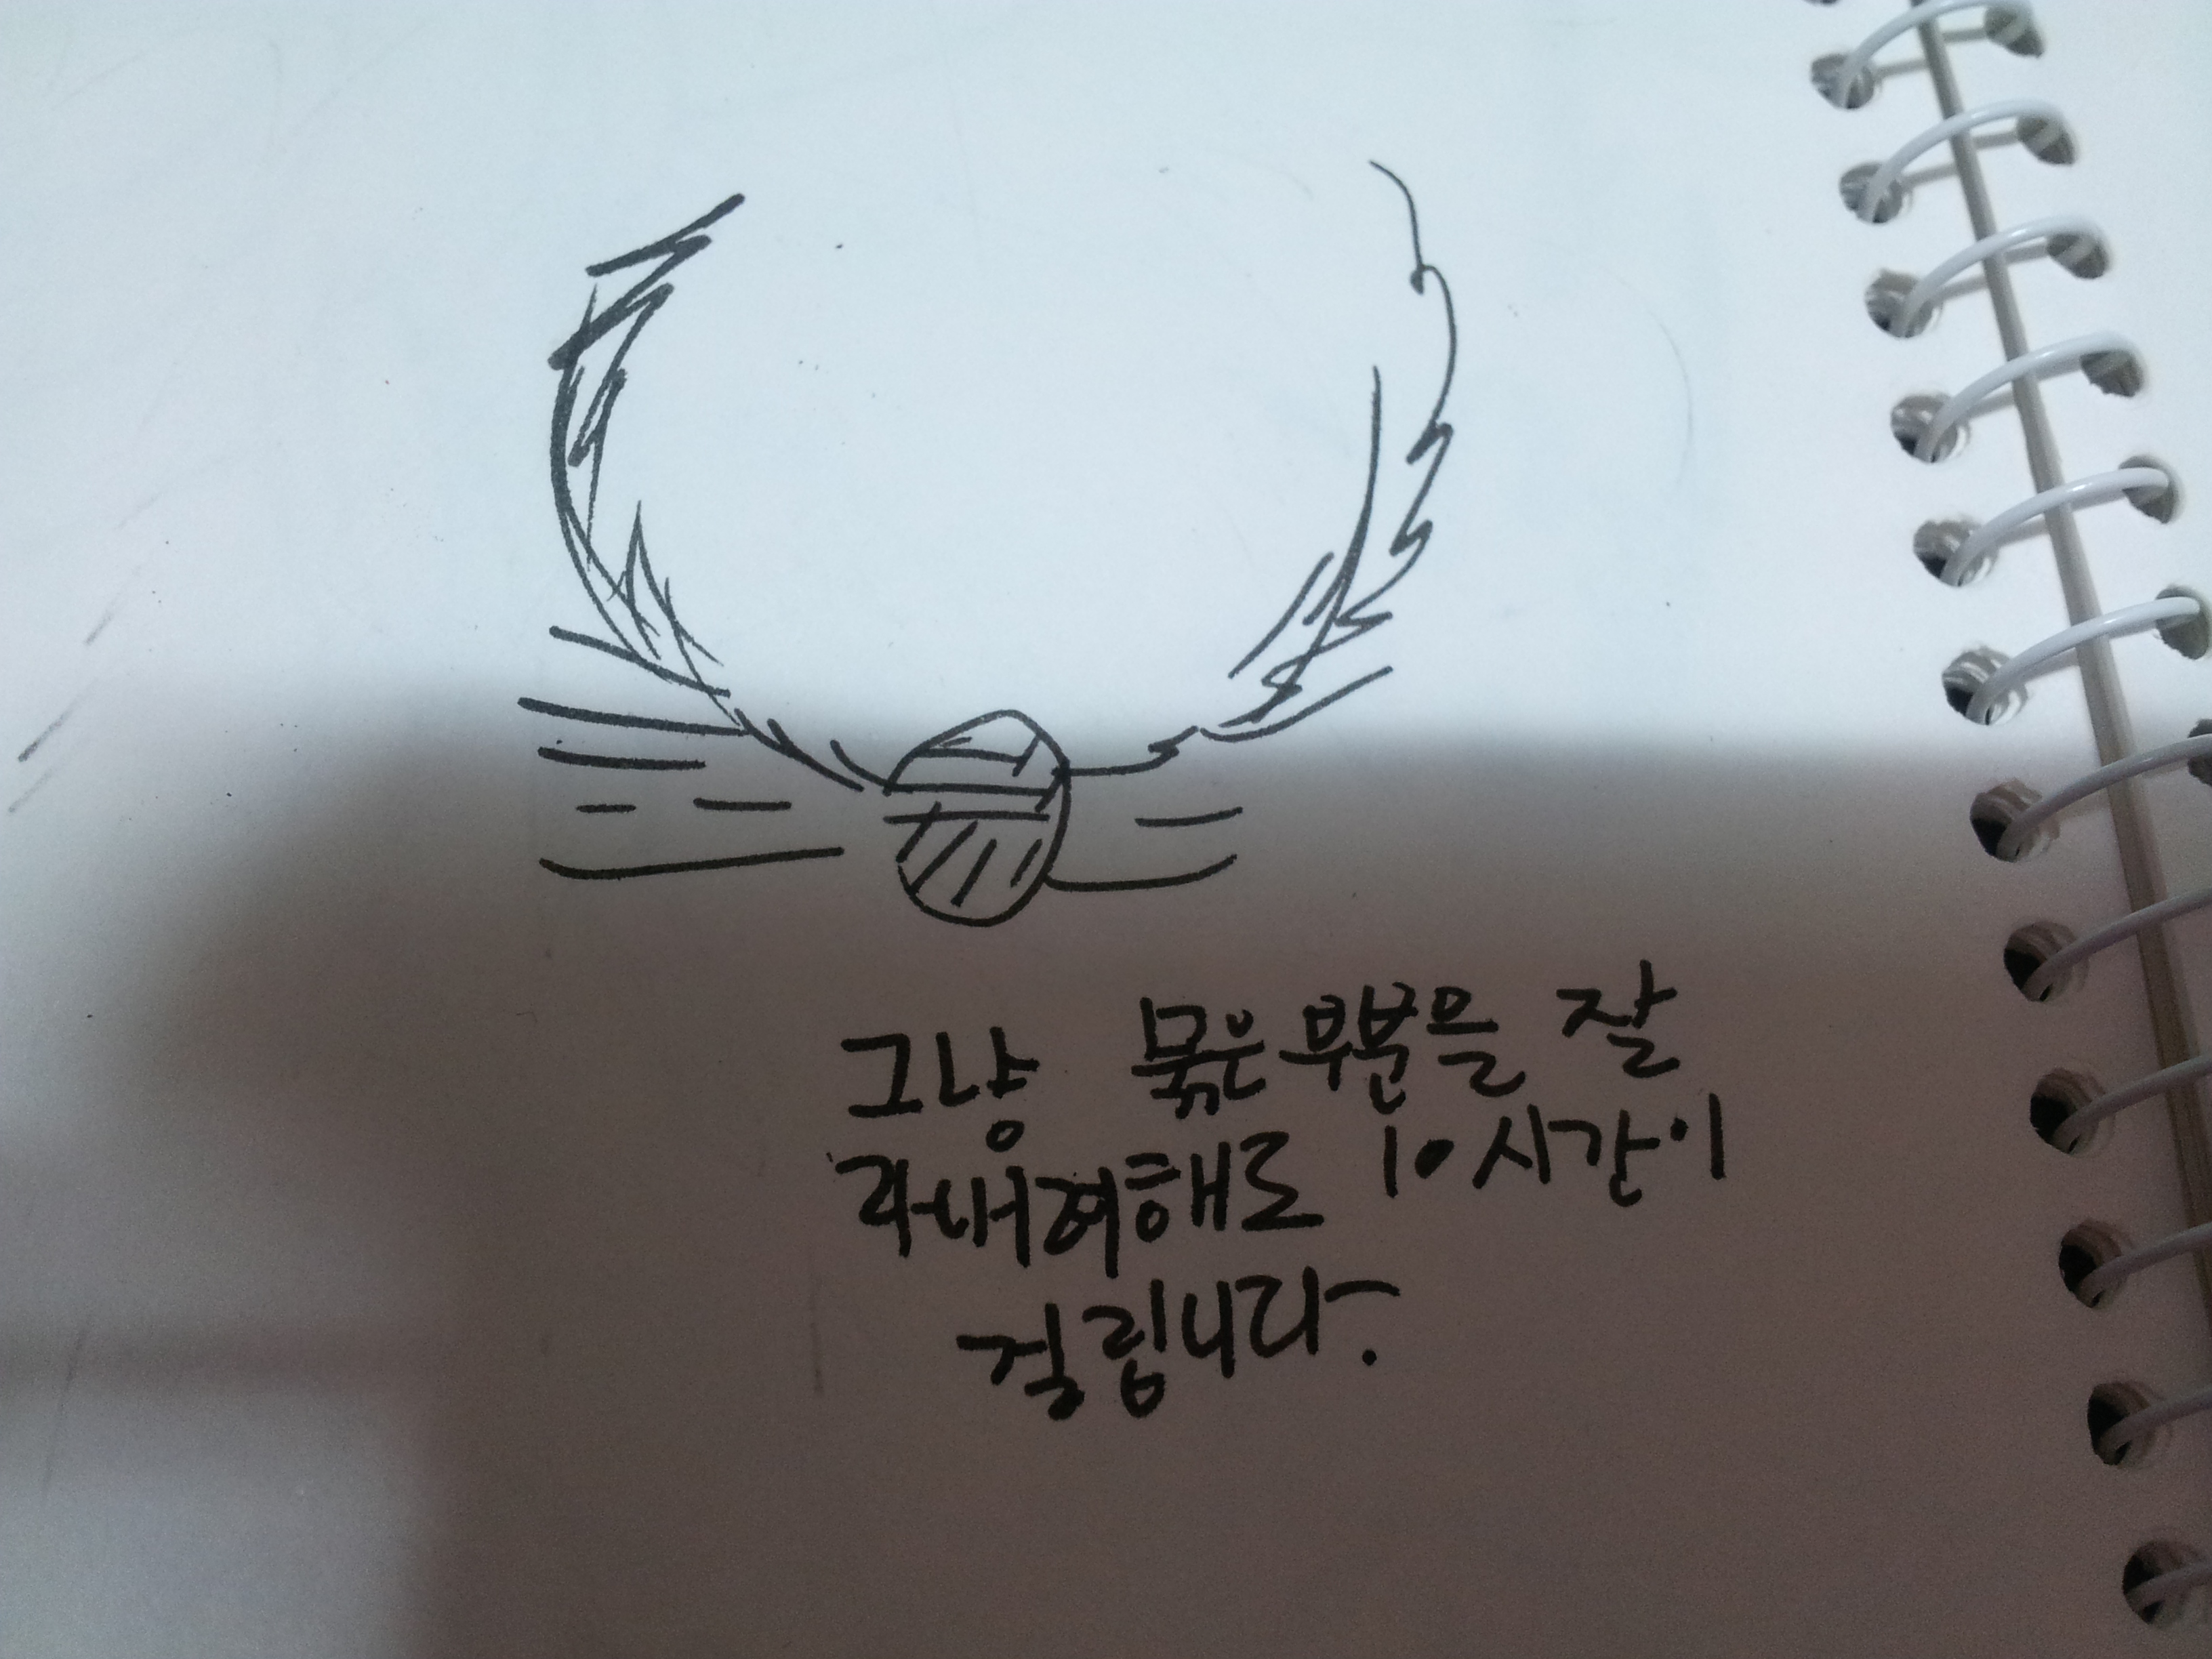 그냥 묶은부분을 잘
라내려해도 10시간이
걸립니다.